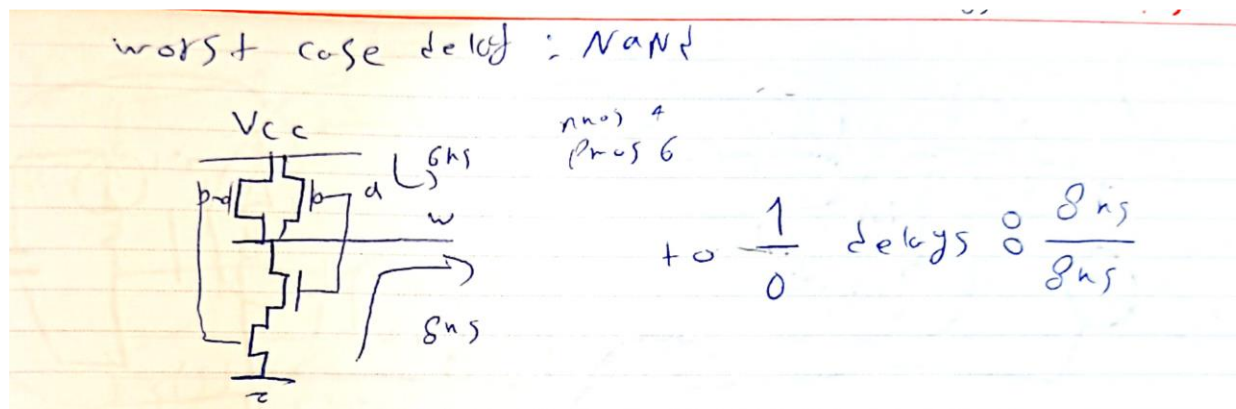 worst case delay : NaNd
Vcc
nmos 4
pmos 6
6ns
a
w
8ns
to 1/0 delays : 8ns/8ns